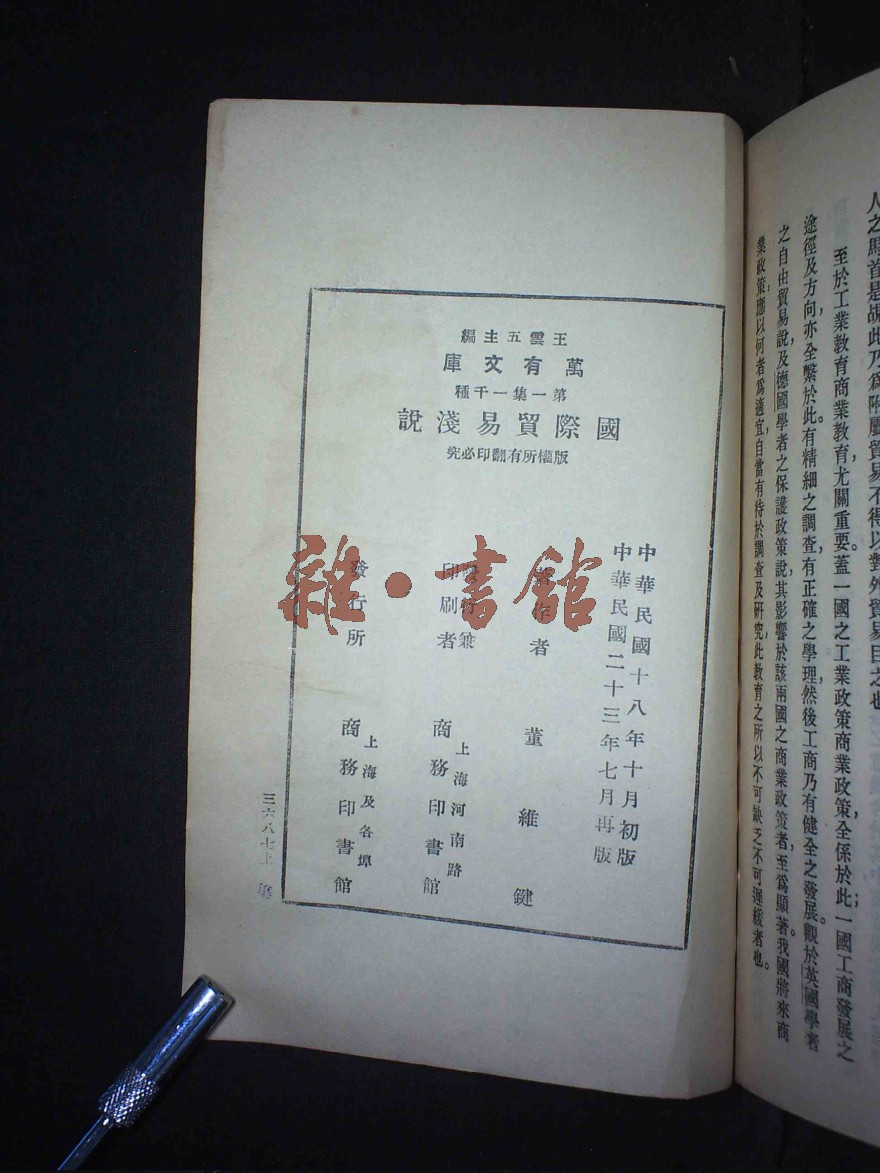 人之馬首是瞻此乃爲附屬貿易不得以對外貿易目之也
至於工業教育商業教育尤關重要蓋一國之工業政策商業政策全係於此一國工商發展之
途徑及方向亦全繫於此。有精細之調查有正確之學理然後工商乃有健全之發展觀於英國學者
之自由貿易說及德國學者之保護政策說其影響於該兩國之商業政策者至爲顯著我國將來商
業政策應以何者爲適宜自當有待於調查及研究此教育之所以不可缺乏不可遲緩者也。
王雲五主編
萬有文庫
第一集一千種
國際貿易淺說
版權所有翻印必究
中華民國十八年十月初版
中華民國二十三年七月再版
著作者 董維鍵
發行兼
印刷者
上海河南路
商務印書館
發行所
上海及各埠
商務印書館
三六八七上
雜·書館